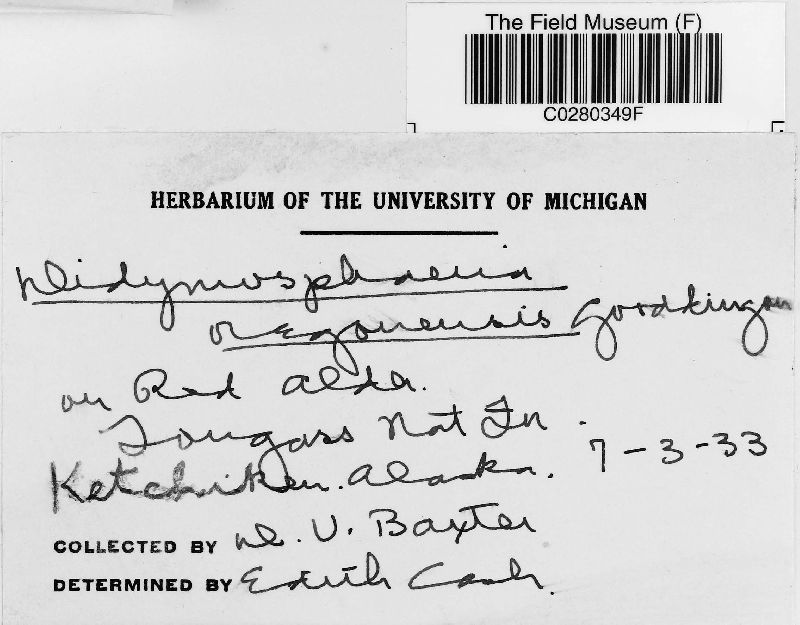 The Field Museum (F)
C0280349F
HERBARIUM OF THE UNIVERSITY OF MICHIGAN
Didymosphaeria
oregonensis Goodking
on Red Alder.
Tongass Nat For.
Ketchikan. Alaska. 7-3-33
COLLECTED BY D. V. Baxter
DETERMINED BY Edith Cash.